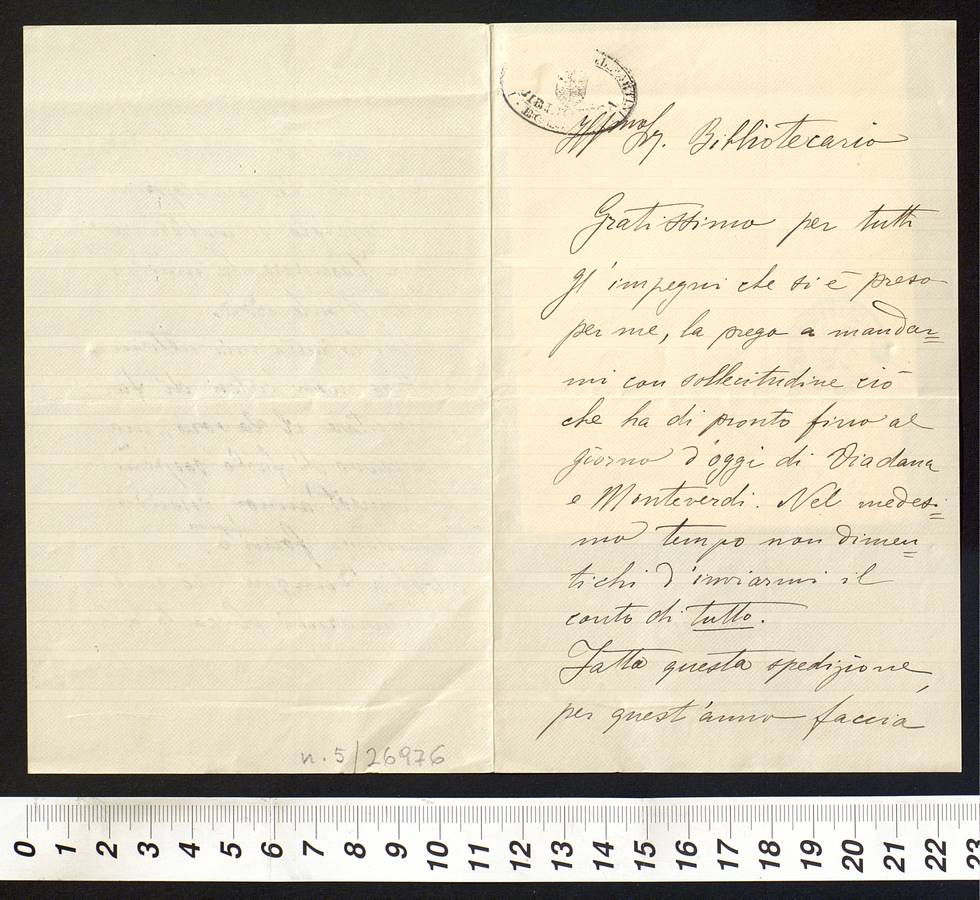 n. 5/26976
Illmo Sig. Bibliotecario
Gratissimo per tutti
gl'impegni che si è preso
per me, la prego a mandar=
mi con sollecitudine ciò
che ha di pronto fino al
giorno d'oggi di Viadana
e Monteverdi. Nel medesi=
mo tempo non dimen=
tichi d'inviarmi il
conto di tutto.
Fatta questa spedizione,
per quest'anno faccia
0 1 2 3 4 5 6 7 8 9 10 11 12 13 14 15 16 17 18 19 20 21 22 23